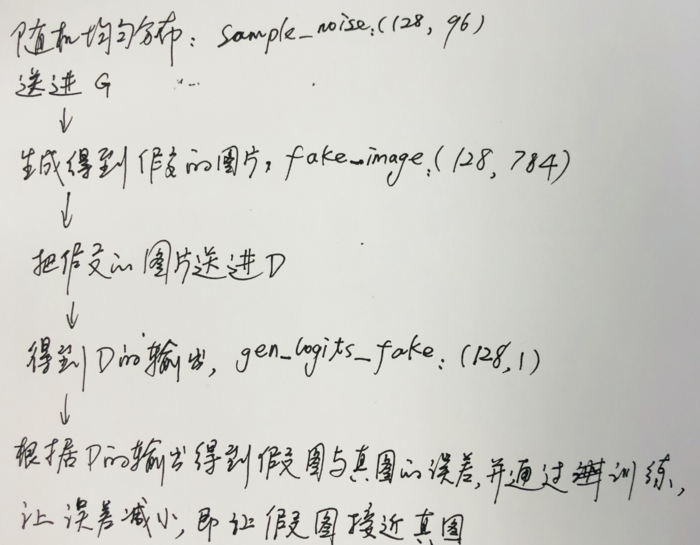 随机均匀分布: sample_noise:(128, 96)
送进 G
↓
生成得到假的图片, fake_image:(128, 784)
↓
把假的图片送进D
↓
得到D的输出, gen_logits_fake: (128,1)
↓
根据D的输出得到假图与真图的误差,并通过训练,
让误差减小,即让假图接近真图